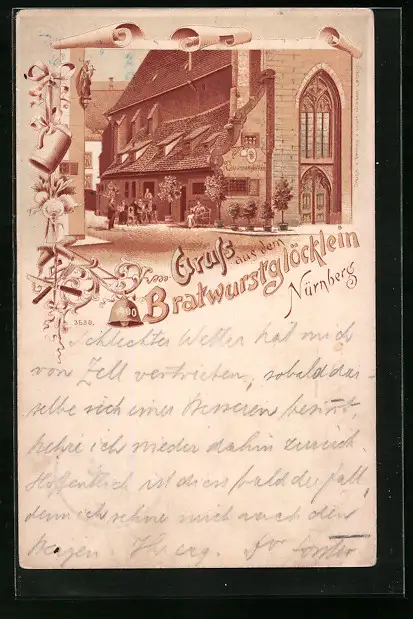 Gruß aus dem
Bratwurstglöcklein
Nürnberg
3530.
Schlechtes Wetter hat mich
von Zell vertrieben, sobald das-
selbe sich eines Besseren besinnt,
kehre ich wieder dahin zurück.
Hoffentlich ist dies bald der Fall,
denn ich sehne mich nach den
Ihr erg. Dr